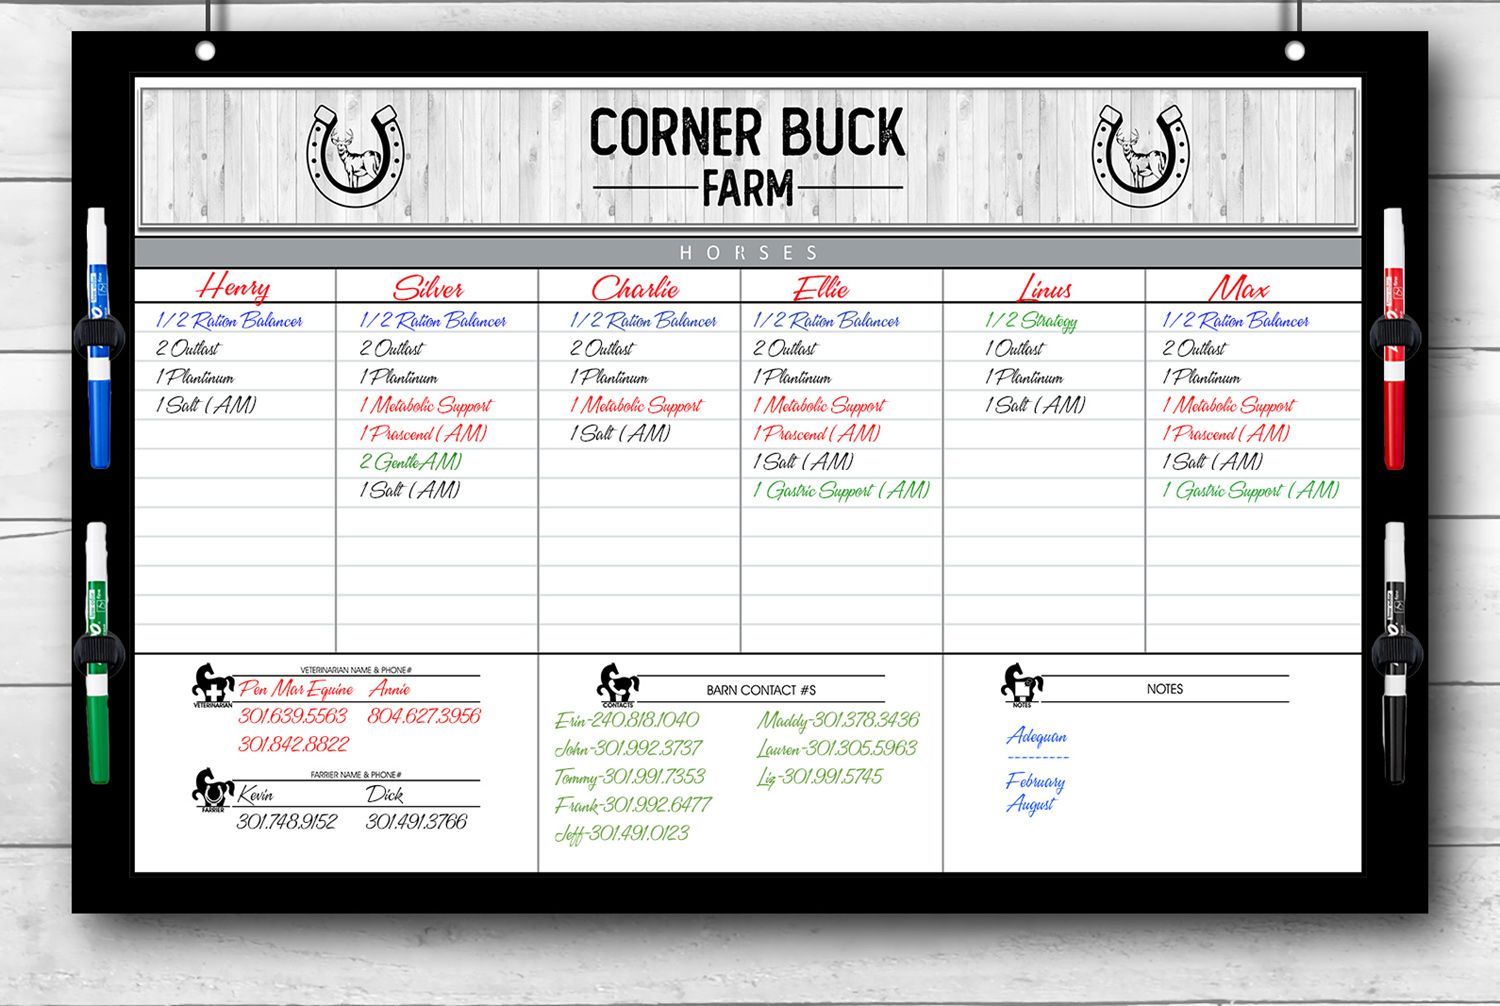 CORNER BUCK
FARM
HORSES
Henry
1/2 Ration Balancer
2 Outlast
1 Plantinum
1 Salt (AM)
Silver
1/2 Ration Balancer
2 Outlast
1 Plantinum
1 Metabolic Support
1 Prascend (AM)
2 GentleAM)
1 Salt (AM)
Charlie
1/2 Ration Balancer
2 Outlast
1 Plantinum
1 Metabolic Support
1 Salt (AM)
Ellie
1/2 Ration Balancer
2 Outlast
1 Plantinum
1 Metabolic Support
1 Prascend (AM)
1 Salt (AM)
1 Gastric Support (AM)
Linus
1/2 Strategy
1 Outlast
1 Plantinum
1 Salt (AM)
Max
1/2 Ration Balancer
2 Outlast
1 Plantinum
1 Metabolic Support
1 Prascend (AM)
1 Salt (AM)
1 Gastric Support (AM)
VETERINARIAN
VETERINARIAN NAME & PHONE#
Pen Mar Equine Annie
301.639.5563 804.627.3956
301.842.8822
FARRIER
FARRIER NAME & PHONE#
Kevin Dick
301.748.9152 301.491.3766
CONTACTS
BARN CONTACT #S
Erin-240.818.1040
John-301.992.3737
Tommy-301.991.7353
Frank-301.992.6477
Jeff-301.491.0123
Maddy-301.378.3436
Lauren-301.305.5963
Liz-301.991.5745
NOTES
NOTES
Adequan
---------
February
August